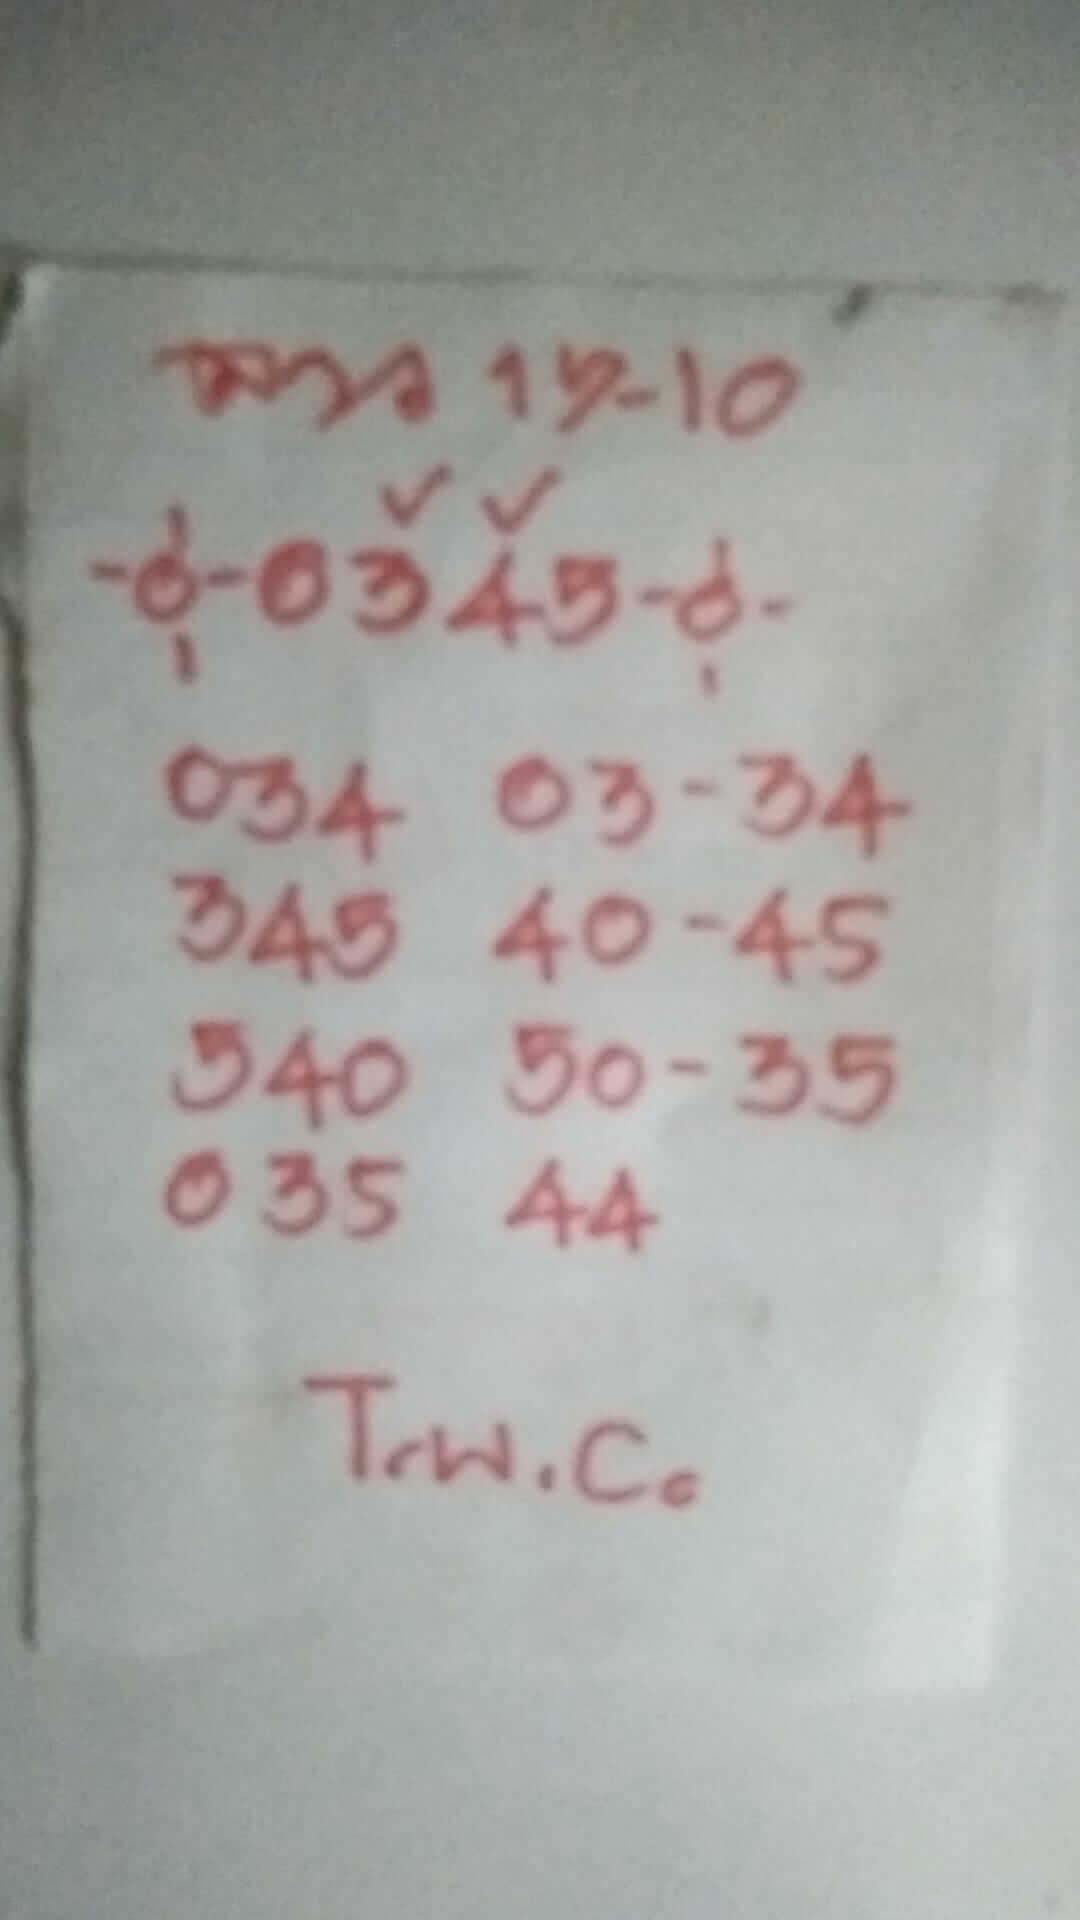 -0-0345-0-
034 03-34
345 40-45
540 50-35
035 44
T.W.C.